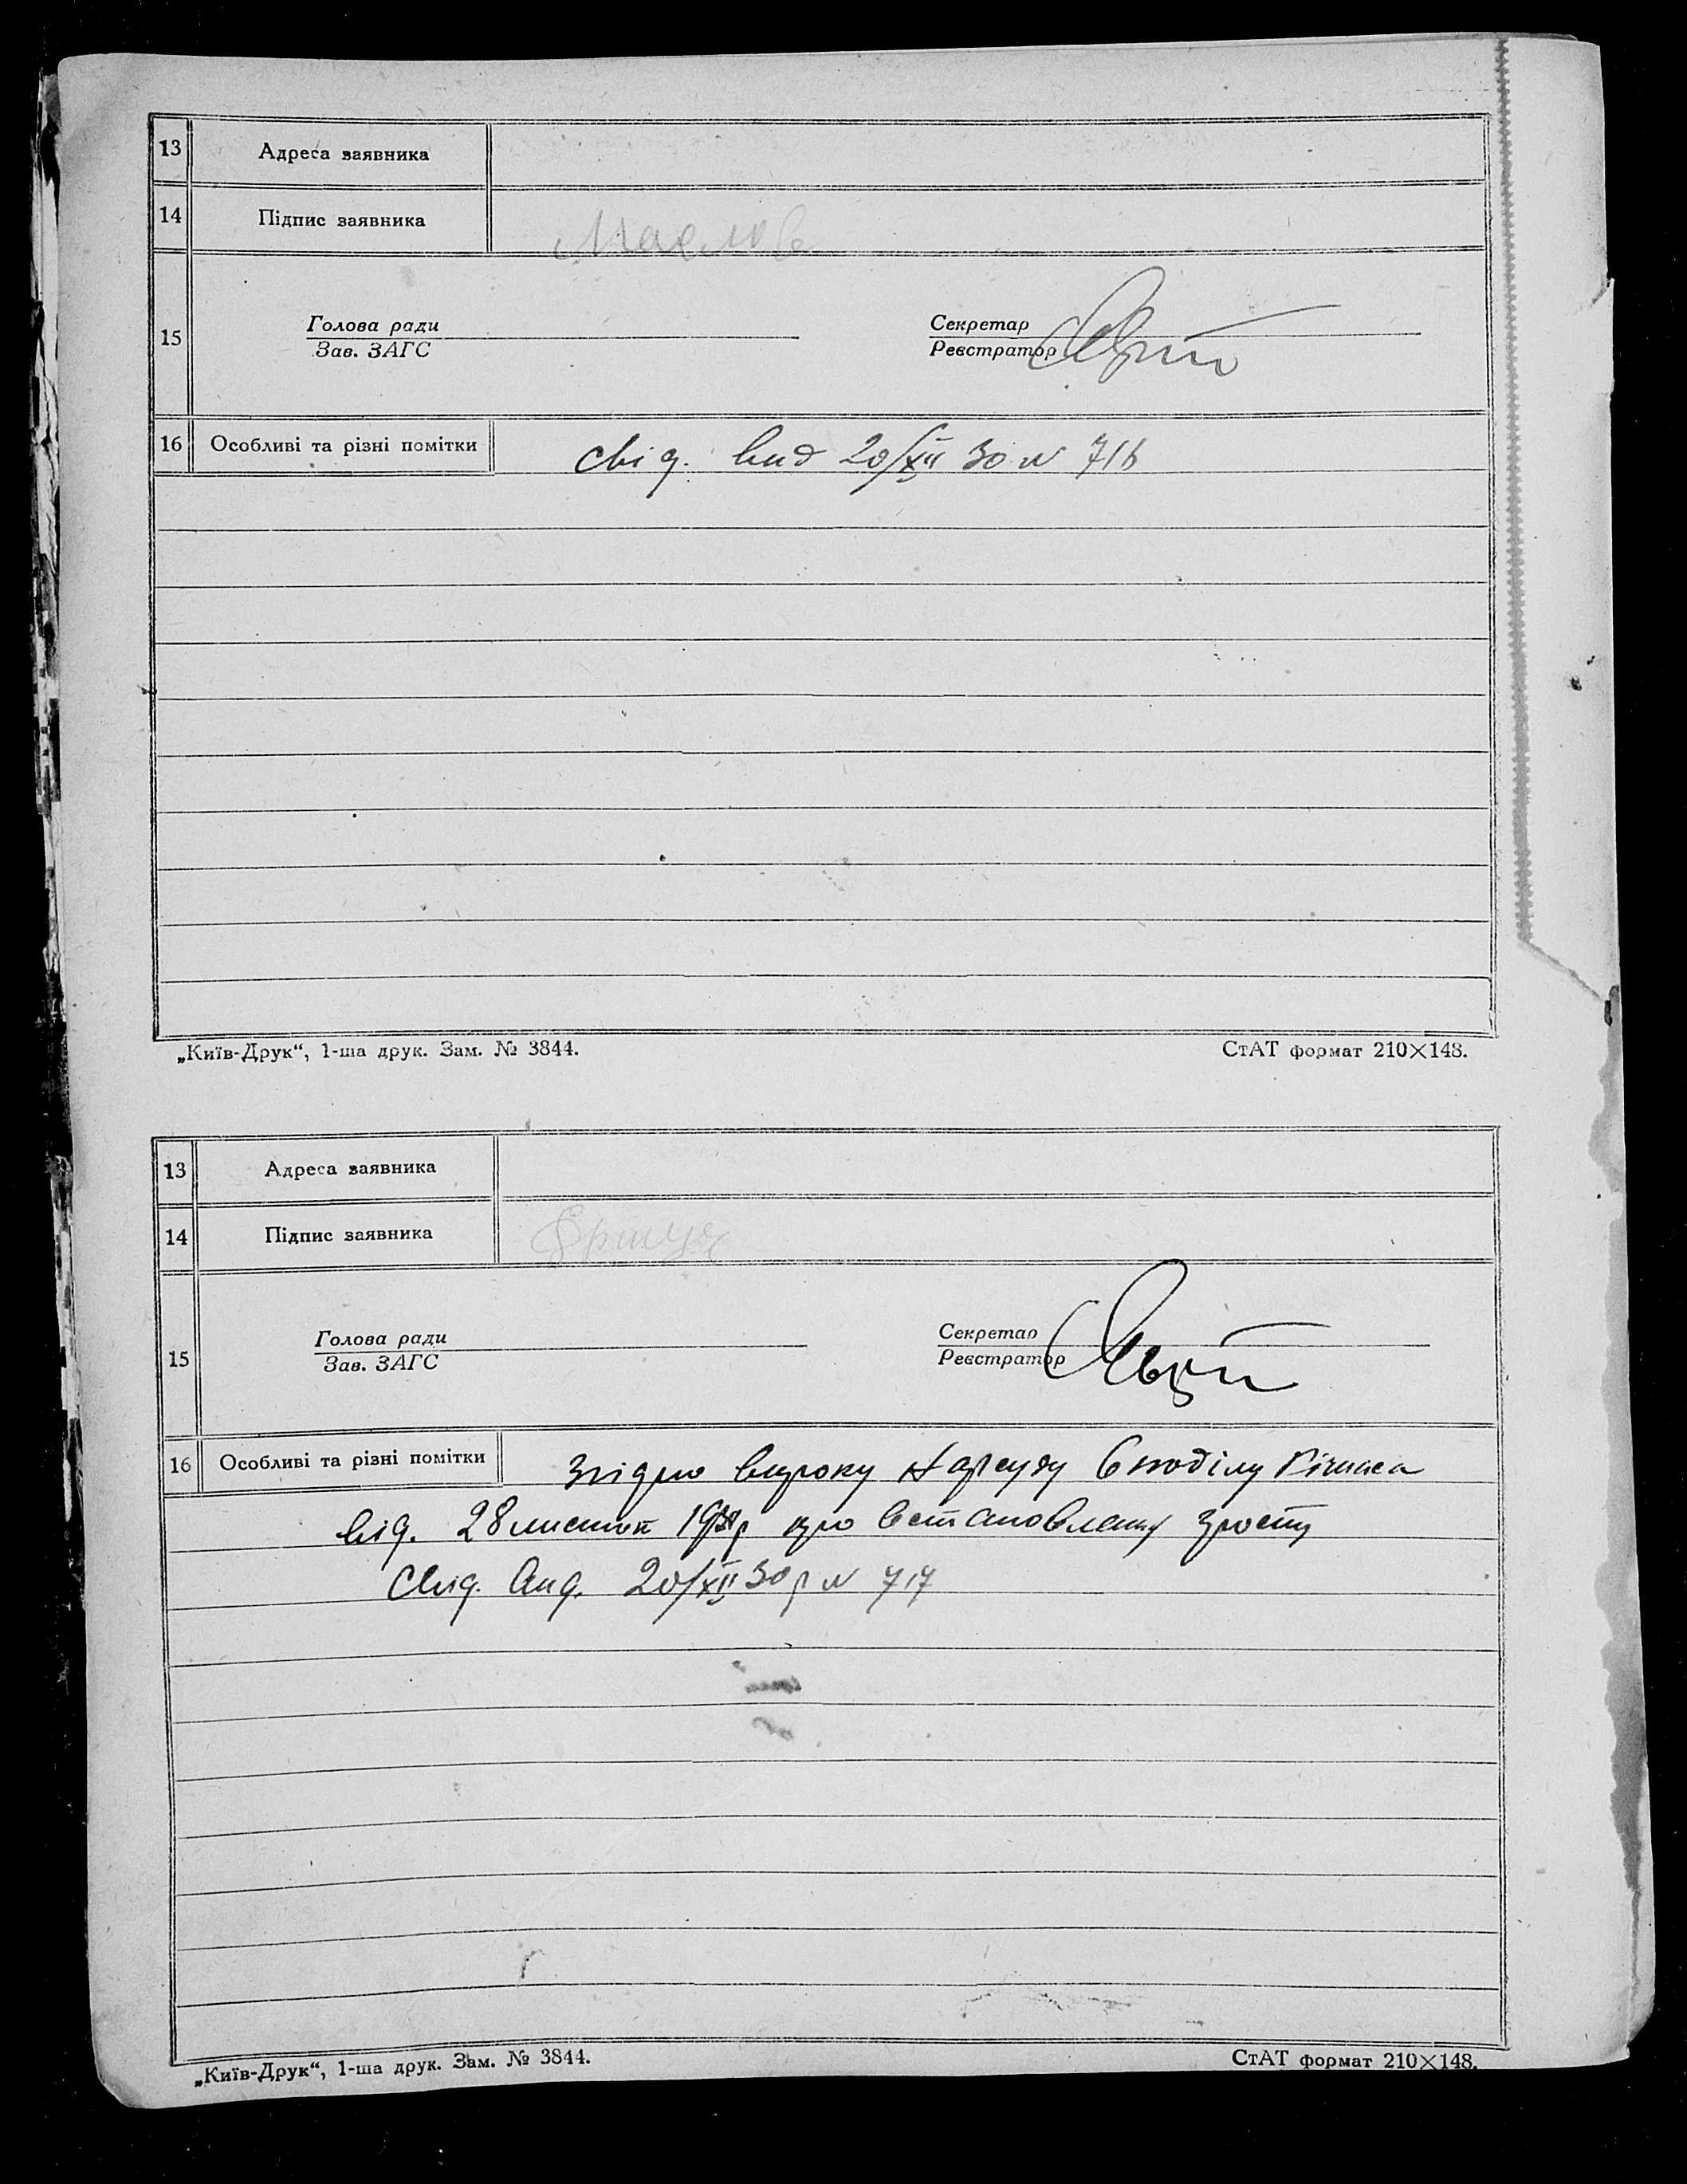 13 Адреса заявника
14 Підпис заявника Маслова
15 Голова ради Секретар
Зав. ЗАГС Реєстратор
16 Особливі та різні помітки свід. вид 20/XII 30 N 716
„Київ-Друк“, 1-ша друк. Зам. № 3844. СтАТ формат 210×148.
13 Адреса заявника
14 Підпис заявника
15 Голова ради Секретар
Зав. ЗАГС Реєстратор
16 Особливі та різні помітки Згідно вироку Нарсуду
від. 28 листоп 1930р про встановлення
свід. вид. 20/XII 30р N 717
„Київ-Друк“, 1-ша друк. Зам. № 3844. СтАТ формат 210×148.